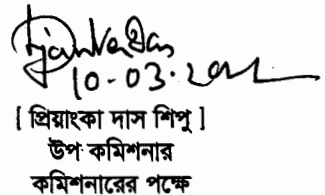 10-03-2022
[ প্রিয়াংকা দাস শিপু ]
উপ কমিশনার
কমিশনারের পক্ষে